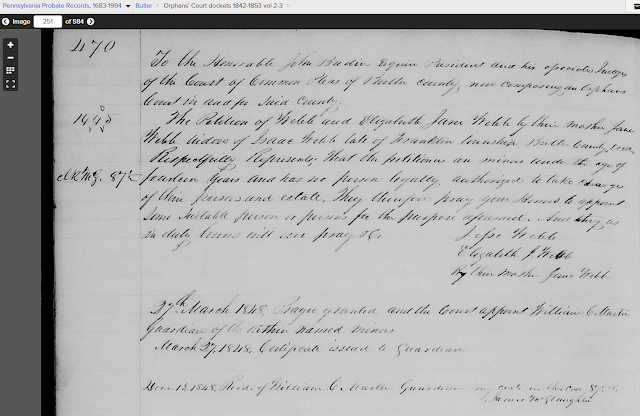 Pennsylvania Probate Records, 1683-1994 Butler Orphans' Court dockets 1842-1853 vol 2-3
Image 251 of 584
470
To the Honorable John Bredin Esquire President and his associate Judges
of the Court of Common Pleas of Butler county, now composing an Orphans
Court in and for said County,
The Petition of Webb and Elizabeth Jane Webb by their mother Jane
Webb widow of Isaac Webb late of Franklin township Butler County, dec'd,
Respectfully Represents, That the petitioners are minors under the age of
fourteen years and has no person legally authorized to take charge
of their persons and estate. They therefore pray your Honors to appoint
some suitable person or persons for the purpose aforesaid. And they as
in duty bound will ever pray &c
Jesse Webb
Elizabeth J Webb
By their mother Jane Webb
27th March 1848, Prayer granted and the Court appoint William C Martin
Guardian of the within named minors
March 27, 1848, Certificate issued to Guardian
1848, Recd of William C Martin Guardian my costs in this case 87½
James McGlaughlin